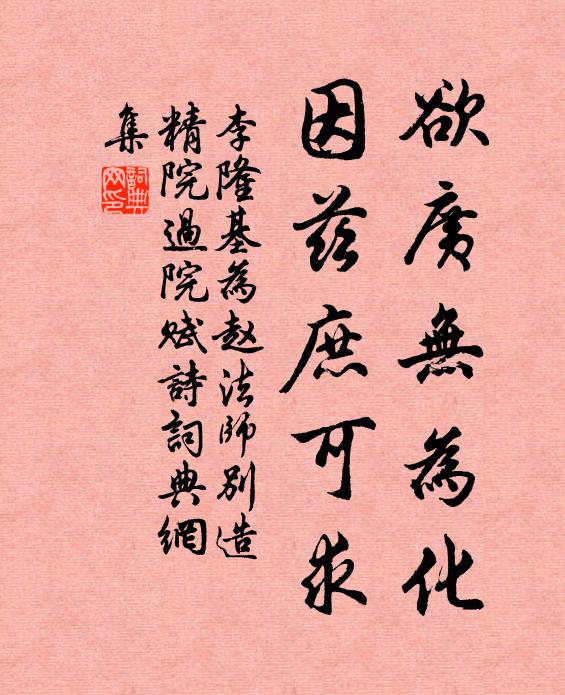 欲廣無為化
因茲庶可求
李隆基為趙法師別造
精院過院賦詩詞典網
集
詞典網印